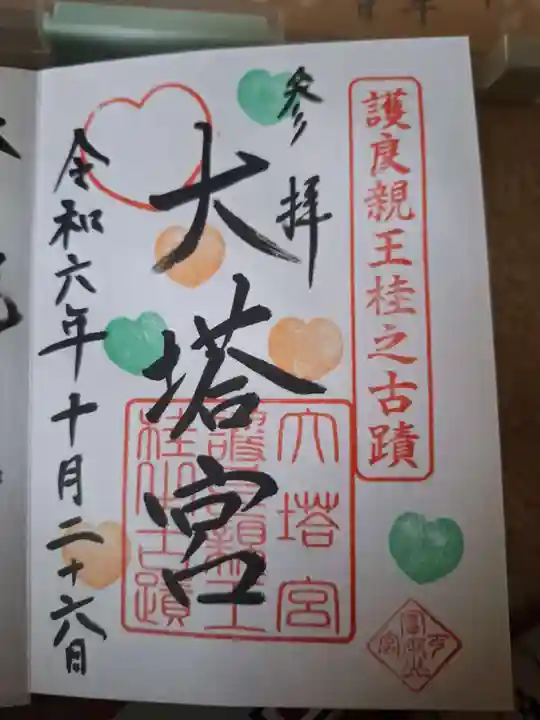 護良親王桂之古蹟
参拝
大塔宮
大塔宮
護良親王
桂之古蹟
令和六年十月二十六日